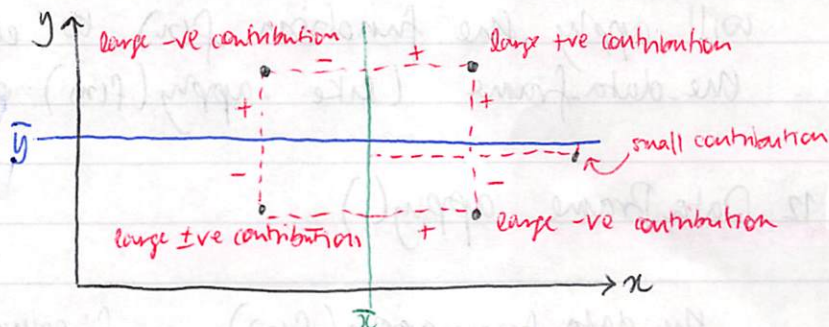 y
large -ve contribution
large +ve contribution
- +
+ +
ȳ
small contribution
- -
large ±ve contribution
- +
large -ve contribution
x
x̄